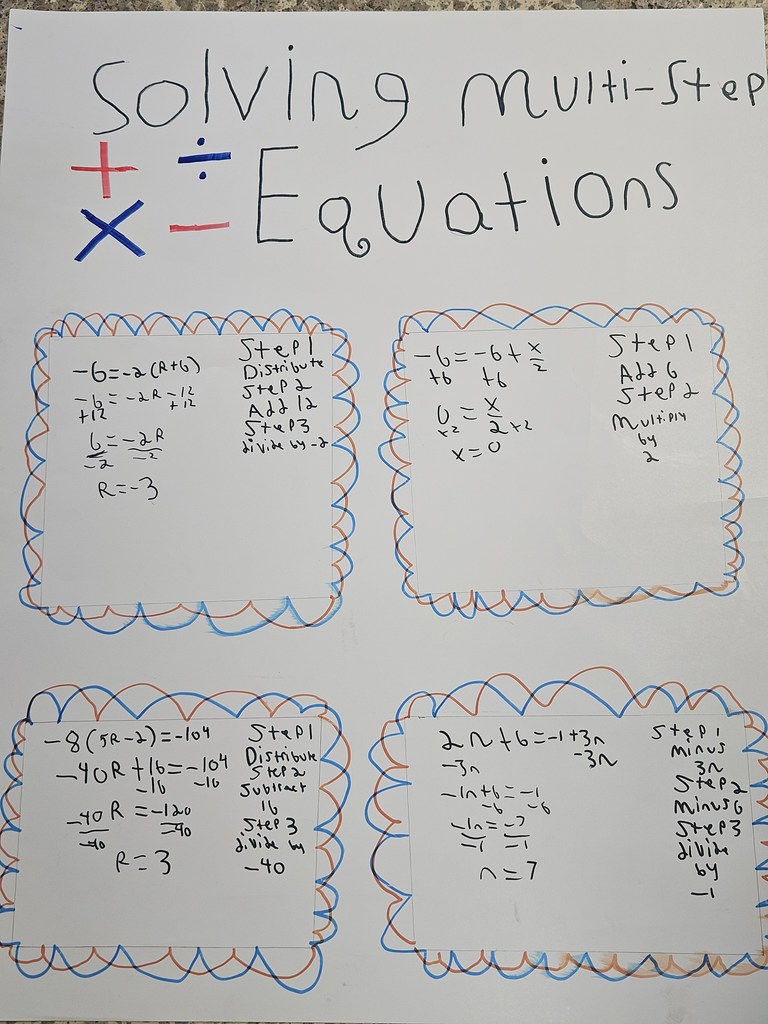 Solving Multi-Step
+ ÷
× - Equations
-6=-2(R+6)
-6=-2R-12
+12 +12
6=-2R
-2 -2
R=-3
Step1
Distribute
Step2
Add 12
Step3
divide by -2
-6=-6+x/2
+6 +6
0=x/2
×2 ×2
x=0
Step1
Add 6
Step2
Multiply
by
2
-8(5R-2)=-104
-40R+16=-104
-16 -16
-40R=-120
-40 -40
R=3
Step1
Distribute
Step2
Subtract
16
Step3
divide by
-40
2n+6=-1+3n
-3n -3n
-1n+6=-1
-6 -6
-1n=-7
-1 -1
n=7
Step1
minus
3n
Step2
minus6
Step3
divide
by
-1